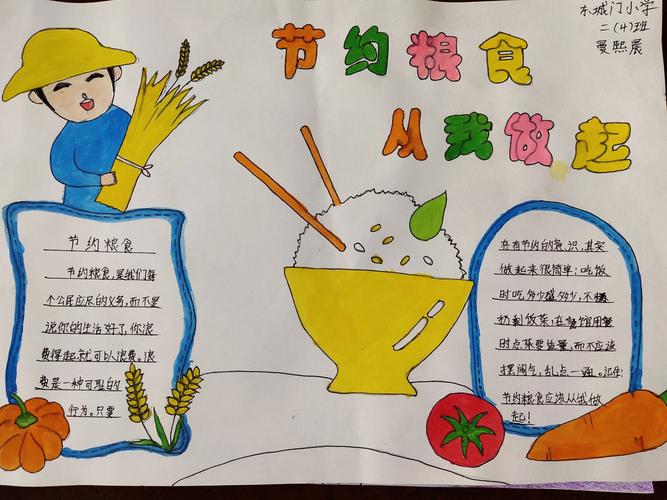 节约粮食
从我做起
东城门小学
二(4)班
曼熙晨
节约粮食
节约粮食,是我们每
个公民应尽的义务,而不是
说你的生活好了,你浪
费得起就可以浪费。浪
费是一种可耻的
行为。只要
存有节约的意识,其实
做起来很简单:吃饭
时吃多少盛多少,不
扔剩饭菜;在餐馆用餐
时点菜要适量,而不应该
摆阔气,乱点一通。记住!
节约粮食应该从我做
起!